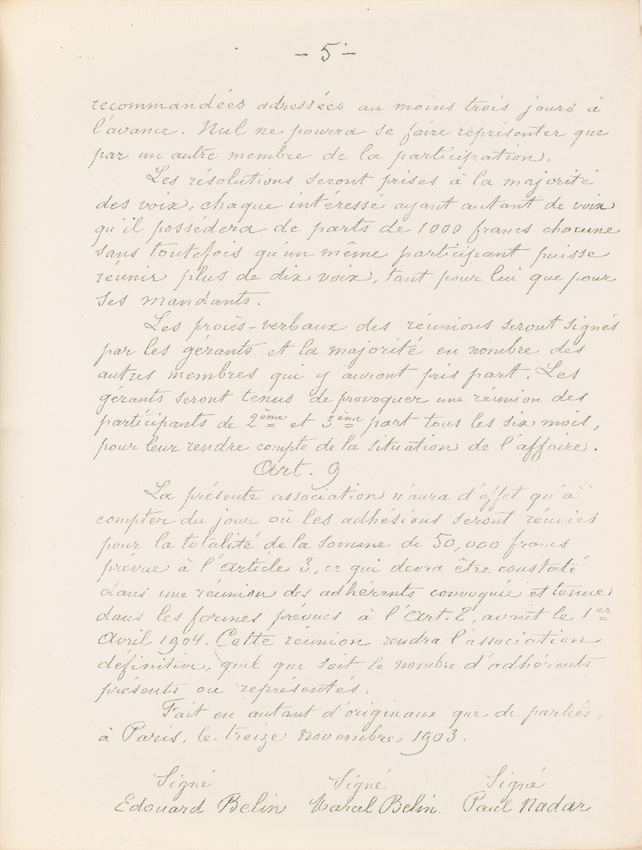 - 5 -
recommandées adressées au moins trois jours à
l'avance. Nul ne pourra se faire représenter que
par un autre membre de la participation.
Les résolutions seront prises à la majorité
des voix, chaque intéressé ayant autant de voix
qu'il possédera de parts de 1000 francs chacune
sans toutefois qu'un même participant puisse
réunir plus de dix voix, tant pour lui que pour
ses mandants.
Les procès-verbaux des réunions seront signés
par les gérants et la majorité en nombre des
autres membres qui y auront pris part. Les
gérants seront tenus de provoquer une réunion des
participants de 2ème et 3ème part tous les six mois,
pour leur rendre compte de la situation de l'affaire.
Art. 9
La présente association n'aura d'effet qu'à
compter du jour où les adhésions seront réunies
pour la totalité de la somme de 50,000 francs
prévue à l'article 3, ce qui devra être constaté
dans une réunion des adhérents convoquée et tenue
dans les formes prévues à l'Art. 8, avant le 1er
Avril 1904. Cette réunion rendra l'association
définitive, quel que soit le nombre d'adhérents
présents ou représentés.
Fait en autant d'originaux que de parties,
à Paris, le treize novembre 1903.
Signé Signé Signé
Edouard Belin Marcel Belin. Paul Nadar